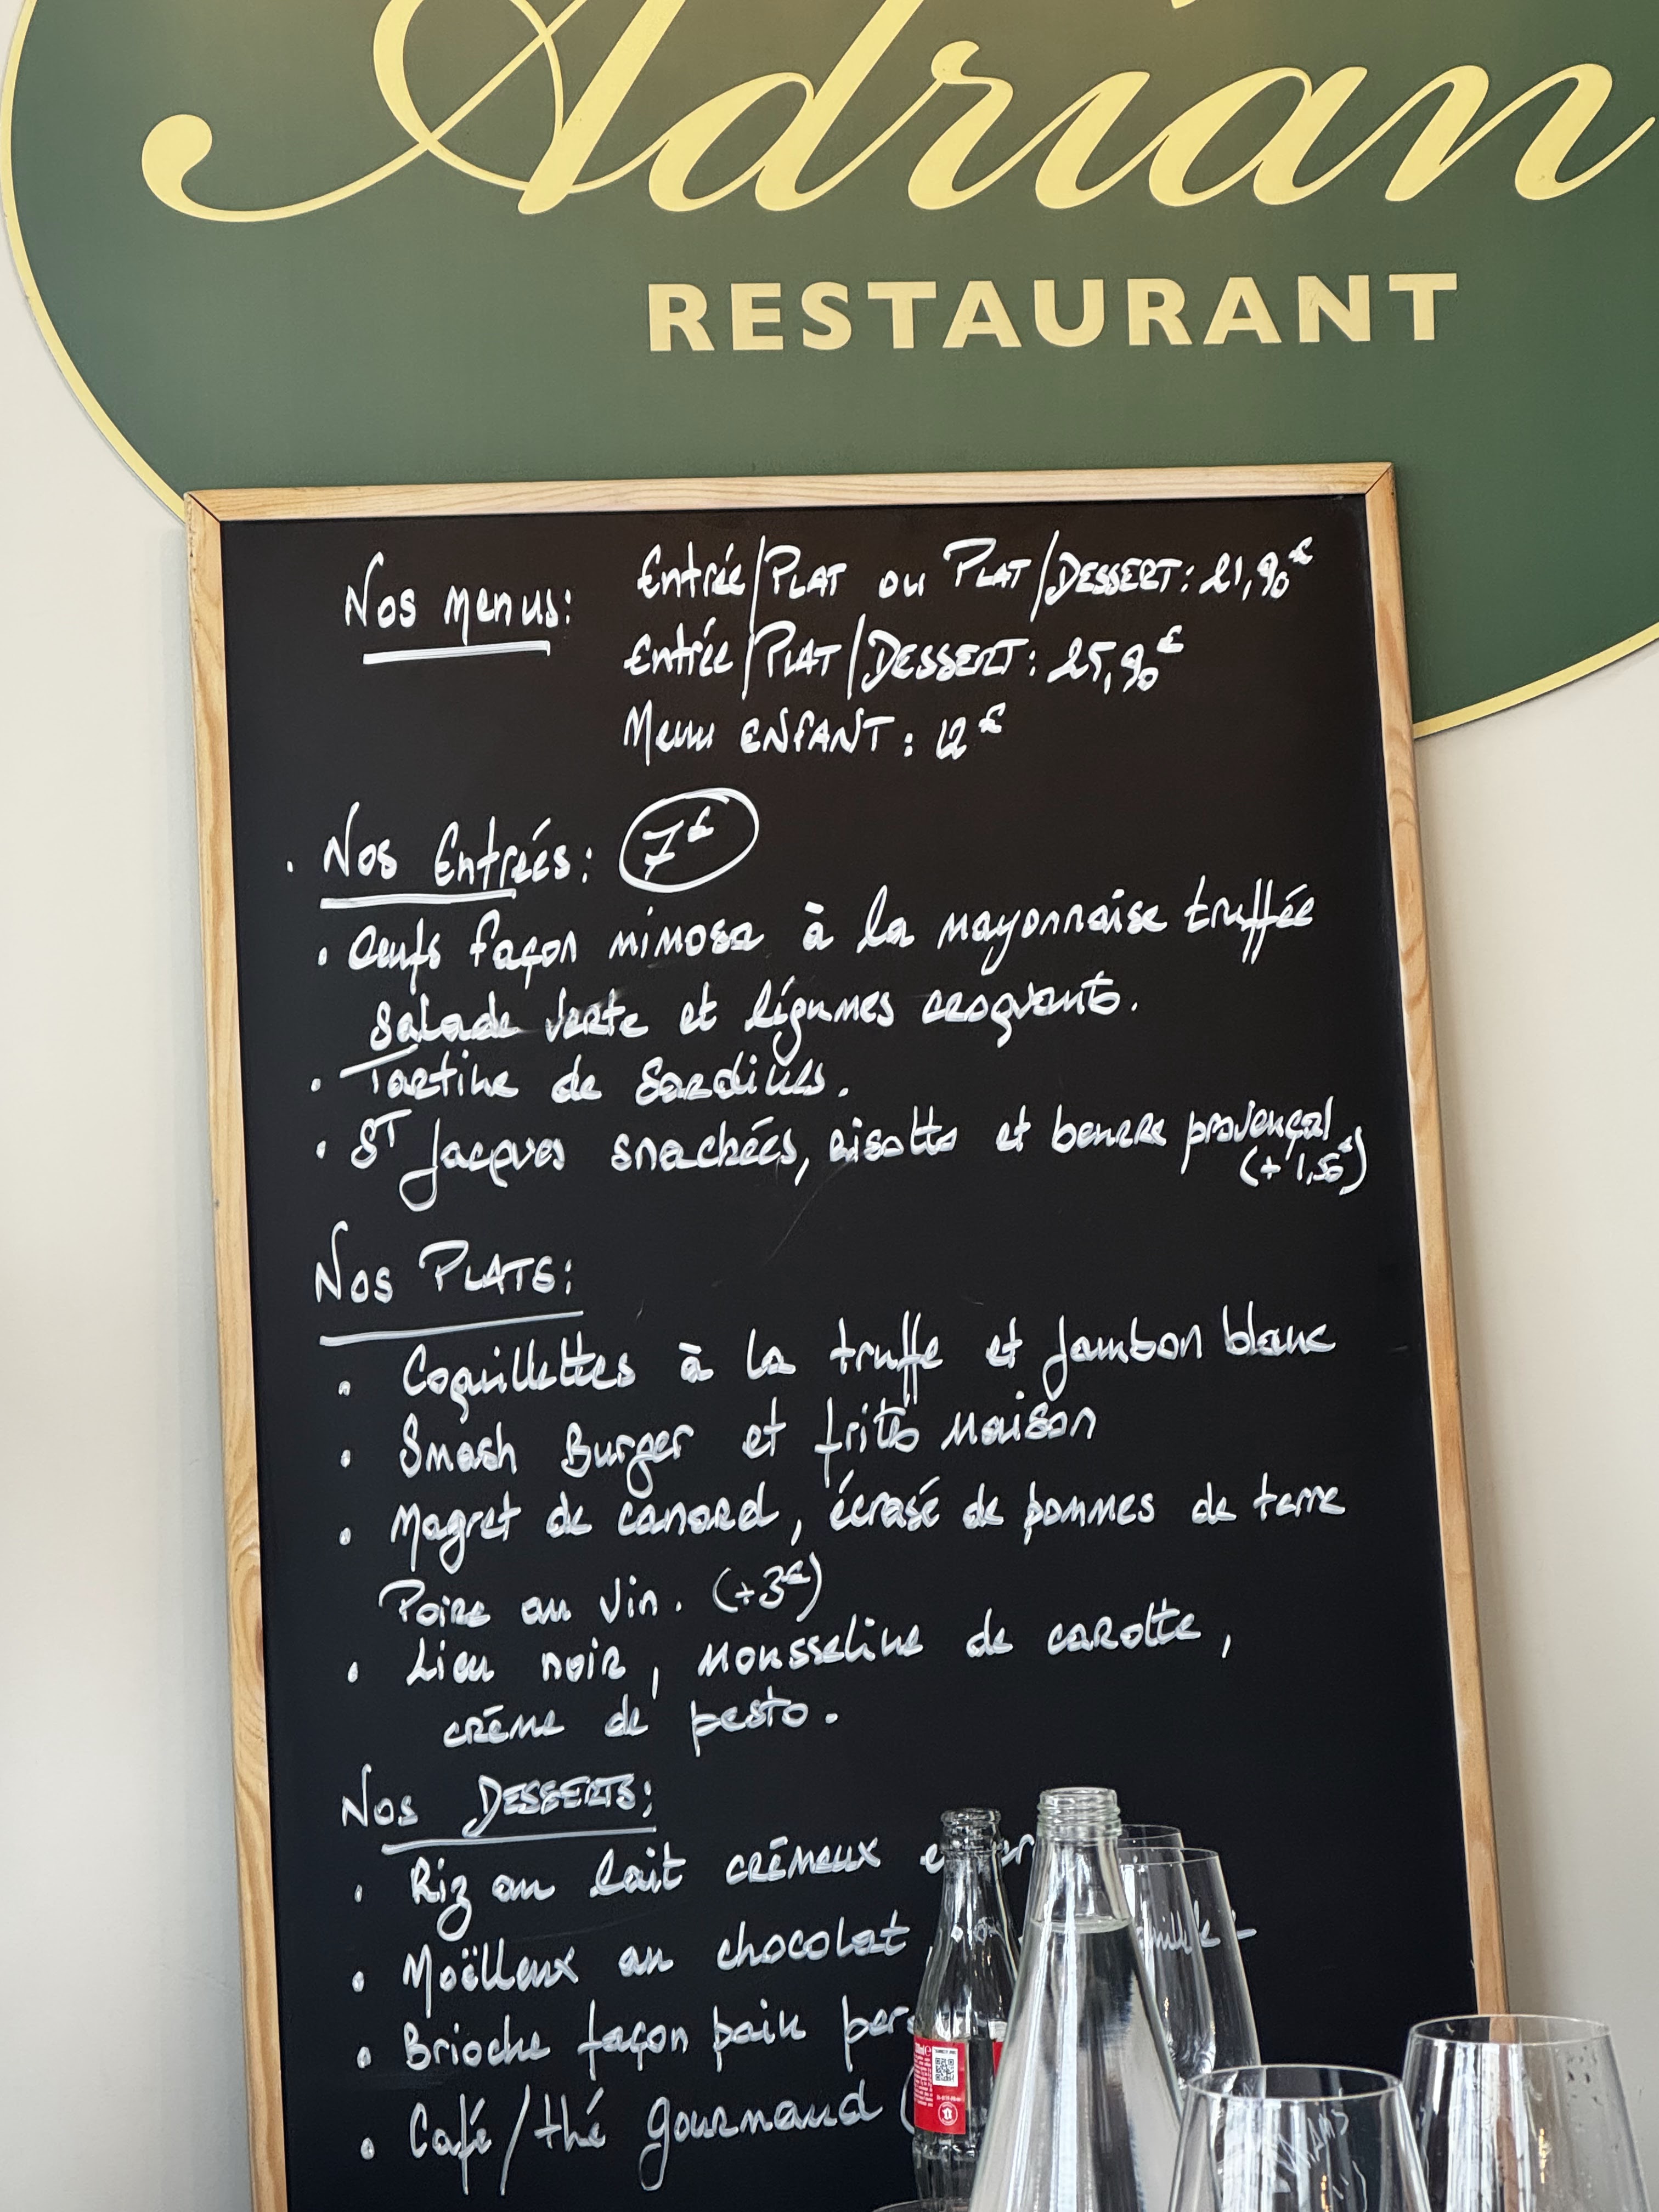 Adrian
RESTAURANT
Nos menus: Entrée/PLAT ou PLAT/DESSERT: 21,90€
Entrée/PLAT/DESSERT: 25,90€
Menu ENFANT: 12€
. Nos Entrées: 7€
• Oeufs façon mimosa à la mayonnaise truffée
Salade verte et légumes croquants.
• Tartine de Sardines.
• ST Jacques snackées, risotto et beurre provençal
(+1,50€)
Nos PLATS:
• Coquillettes à la truffe et Jambon blanc
• Smash Burger et frites Maison
• Magret de canard, écrasé de pommes de terre
Poire au Vin. (+3€)
• Lieu noir, Mousseline de carotte,
crème de pesto.
Nos DESSERTS:
• Riz au lait crémeux
• Moëlleux au chocolat
• Brioche façon pain
• Café/thé gourmand (